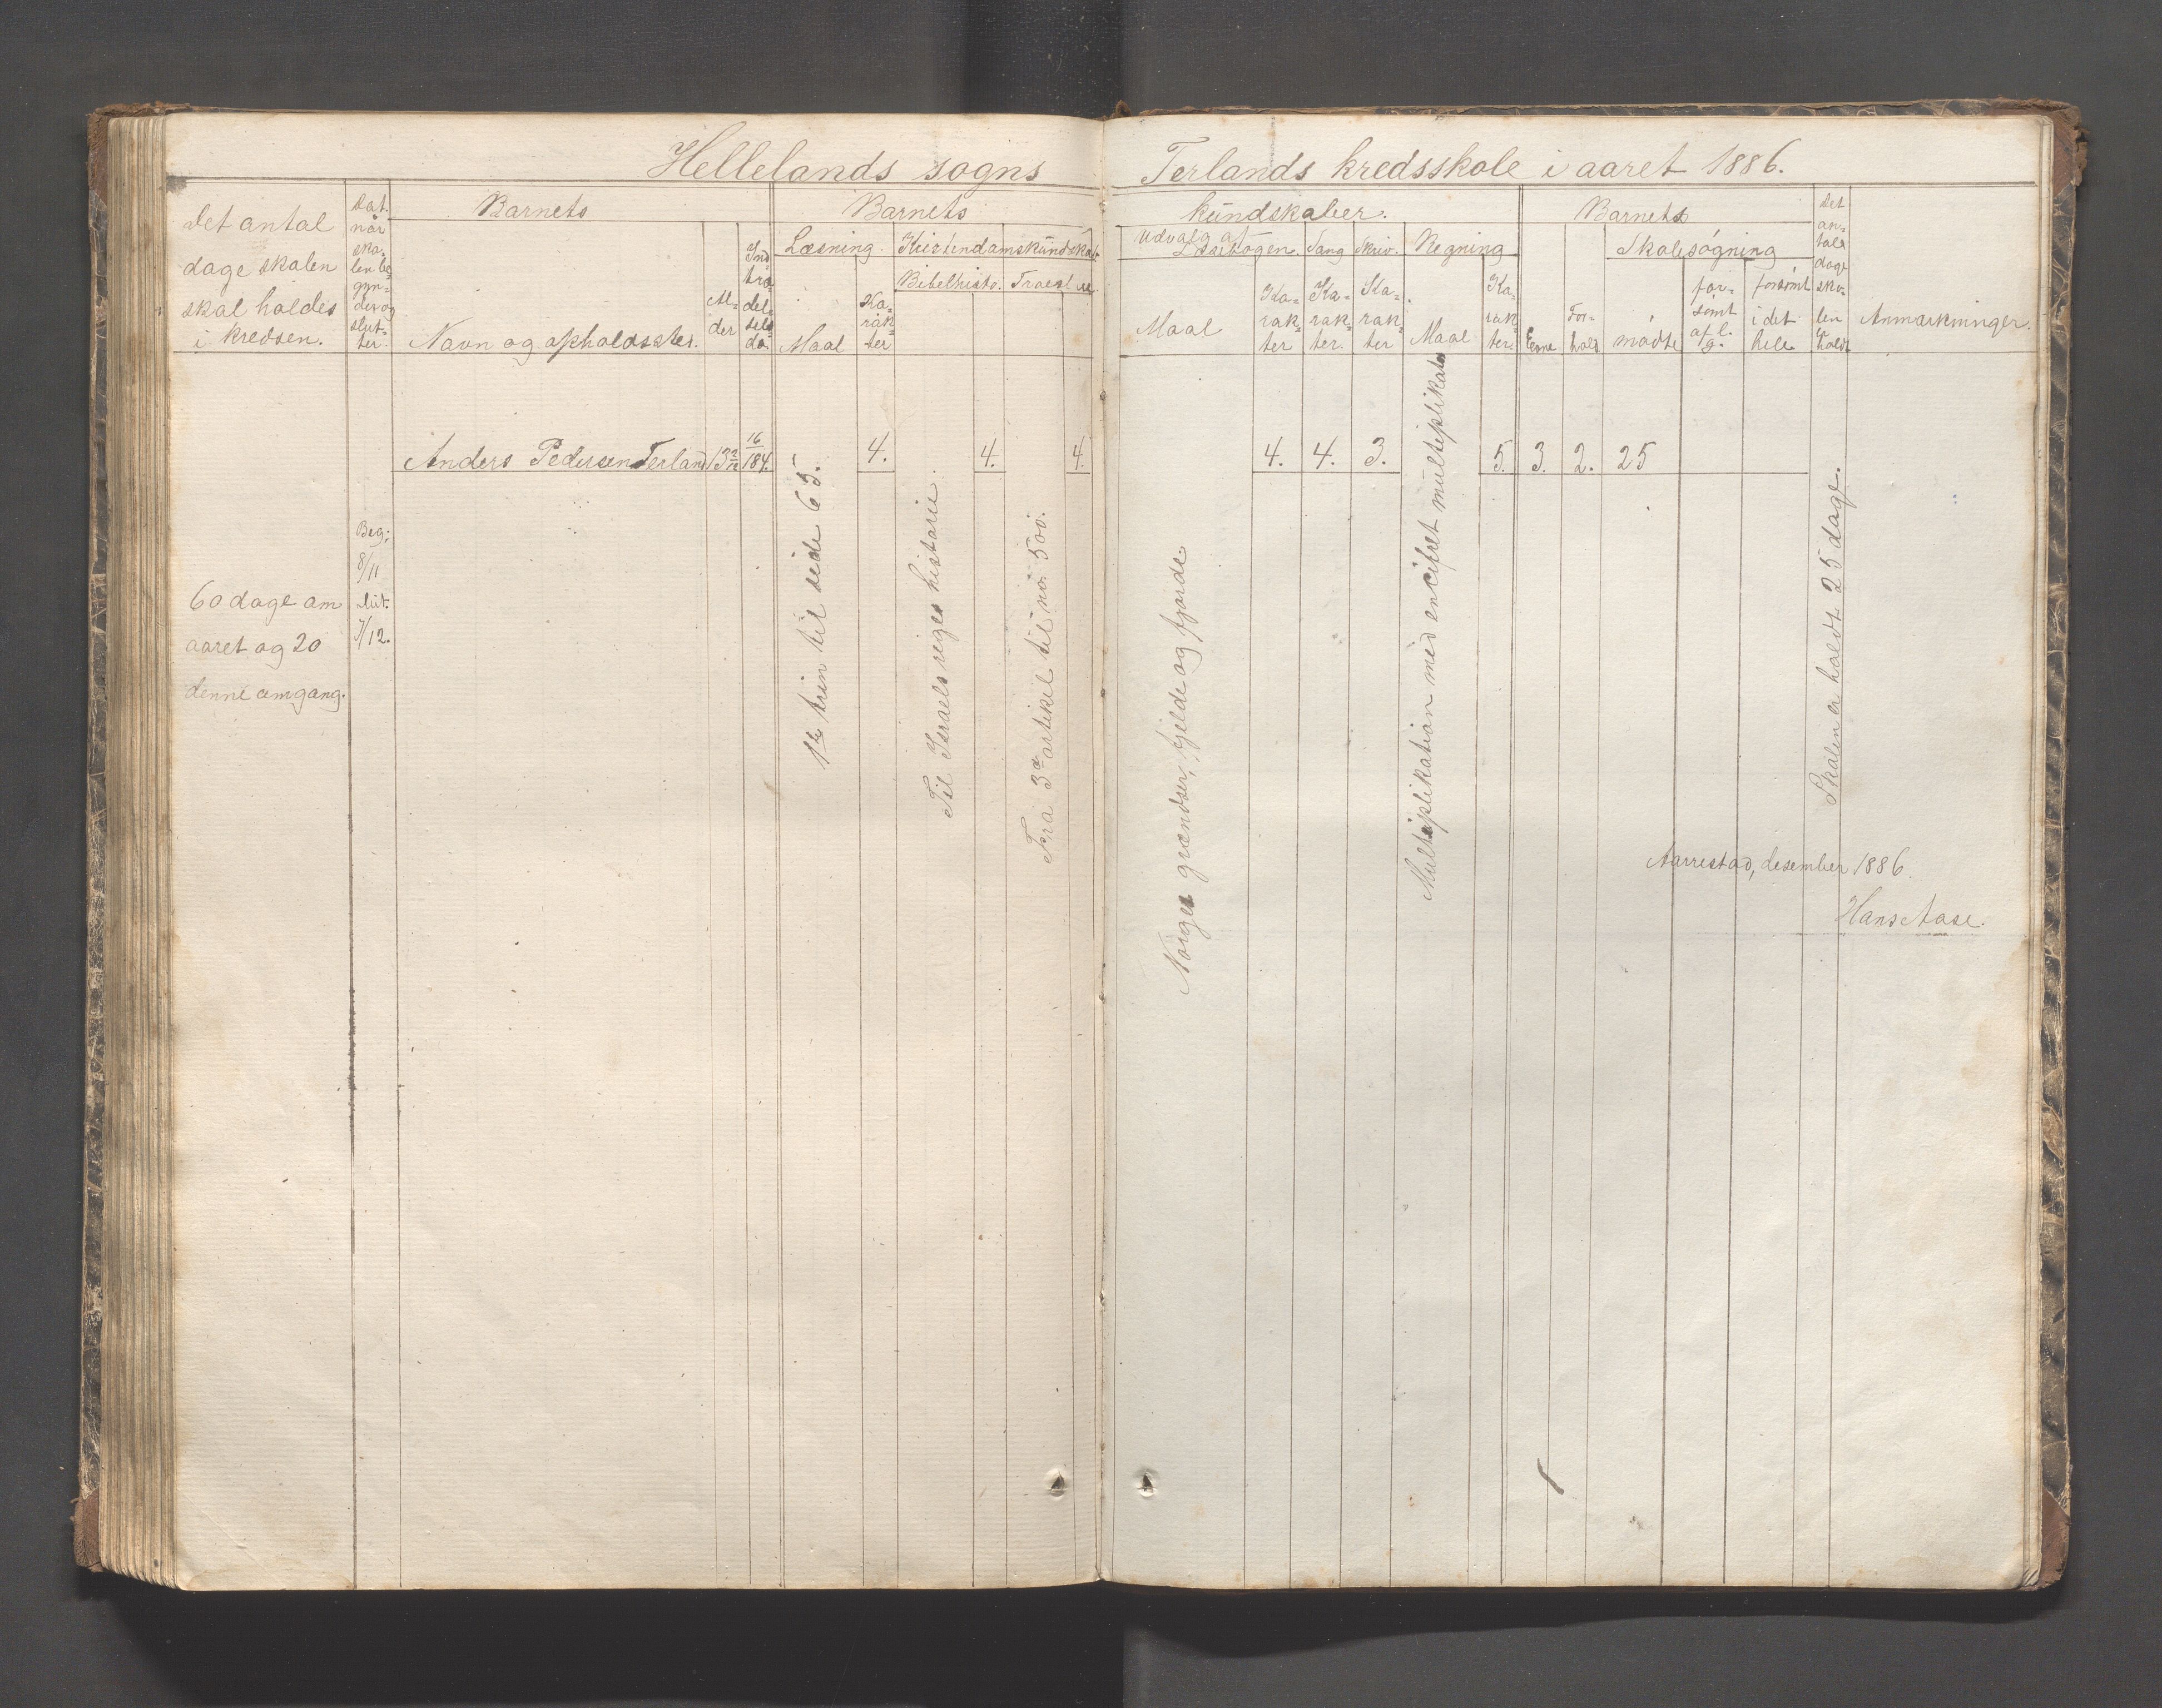 Hellelands sogns
Terlands kredsskole i aaret 1886.
Det antal
dage skolen
skal holdes
i kredsen.
Dat.
når
sko-
len be-
gyn-
der og
slut-
ter.
Barnets
Navn og opholdssted.
Al-
der
Ind-
træ-
del-
sels
da.
Barnets
Læsning.
Maal
Ka-
rak-
ter
Kristendomskundskab
Bibelhisto.
Troesl
kundskaber.
Udvalg af
Læsebogen.
Maal
Ka-
rak-
ter
Sang
Ka-
rak-
ter.
Skriv.
Ka-
rak-
ter
Regning
Maal
Ka-
rak-
ter.
Barnets
Evne
For-
hold
Skolesøgning
mødte
for-
sømt
af l.
g.
forsømt
i det
hele
Det
an-
tal
dage
sko-
len
er
holdt
Anmærkninger.
Anders Pedersen Terland 13 2/12 16/1 84. 4. 4. 4. 4. 4. 3. 5. 3. 2. 25
60 dage om
aaret og 20
denne omgang.
Beg:
8/11
slut.
7/12.
1ste trin til side 65.
Til Israels riges historie.
Fra 3die artikel til no. 500.
Norges grændser, fjelde og fjorde.
Multiplikation med encifret multiplikator
Skolen er holdt 25 dage.
Aarrestad, desember 1886.
Hans Aase.